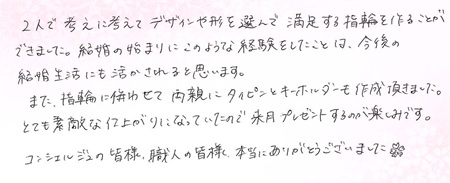 2人で考えに考えてデザインや形を選んで満足する指輪を作ることが
できました。結婚の始まりにこのような経験をしたことは、今後の
結婚生活にも活かされると思います。
また、指輪に併わせて両親にタイピンとキーホルダーも作成頂きました。
とても素敵な仕上がりになっていたので来月プレゼントするのが楽しみです。
コンシェルジュの皆様、職人の皆様、本当にありがとうございました